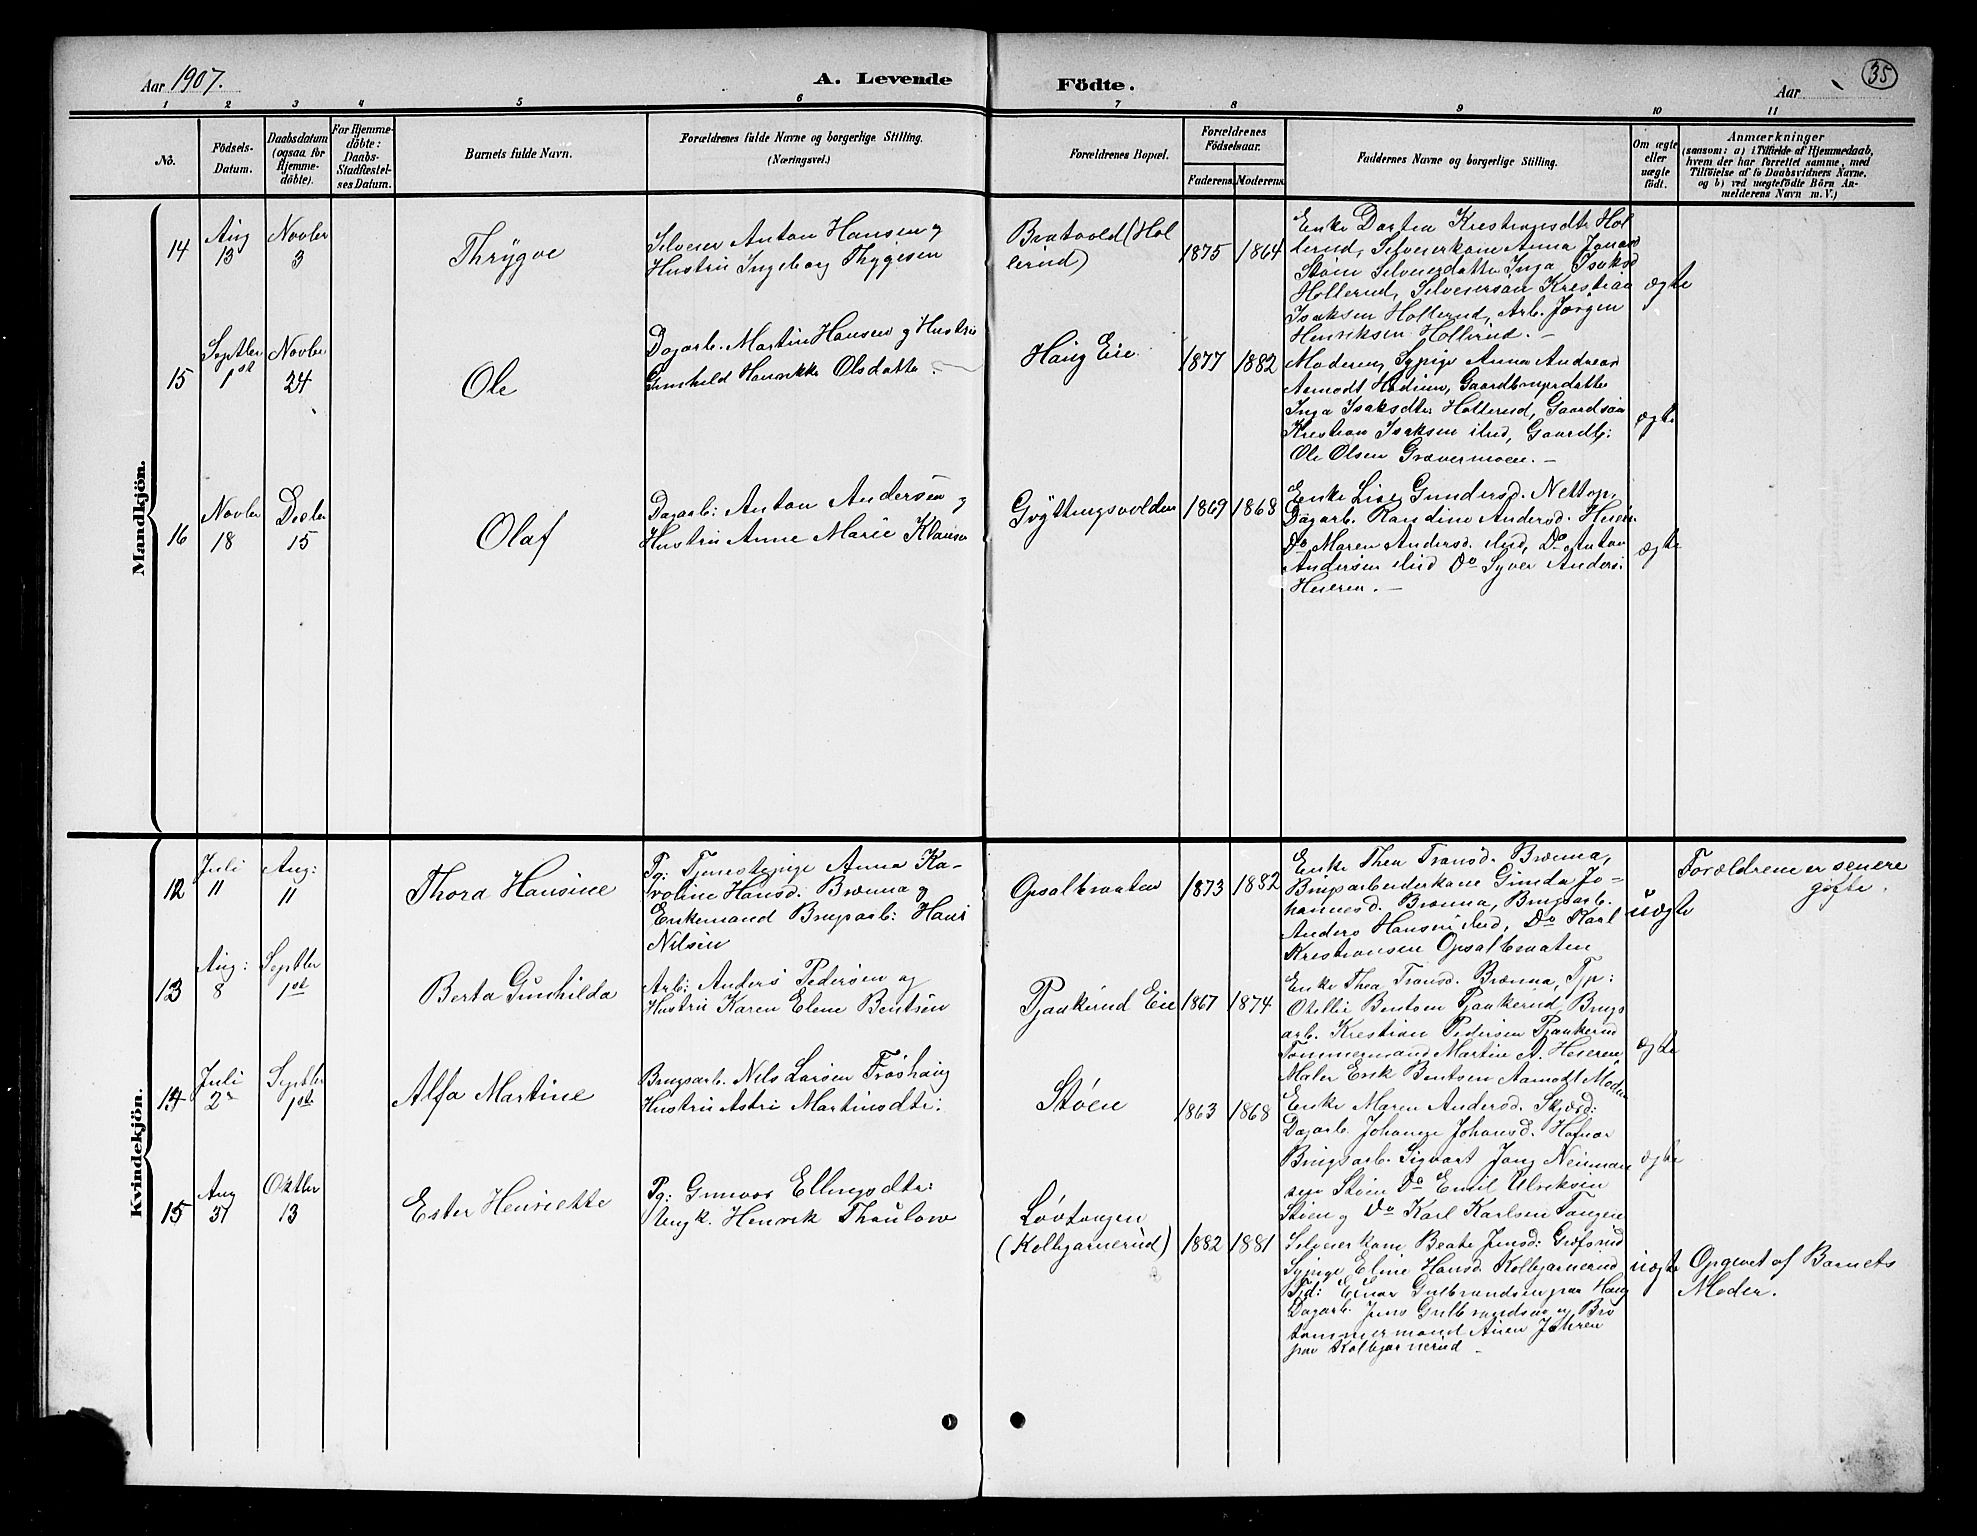 Aar 1907.
A. Levende
Födte.
Aar
35
1 2 3 4 5 6 7 8 9 10 11
No.
Födsels-
Datum.
Daabsdatum
(ogsaa for
Hjemme-
döbte).
For Hjemme-
döbte:
Daabs-
Stadfæstel-
ses Datum.
Barnets fulde Navn.
Forældrenes fulde Navne og borgerlige Stilling.
(Næringsvei.)
Forældrenes Bopæl.
Forældrenes
Födselsaar.
Faderens. Moderens.
Faddernes Navne og borgerlige Stilling.
Om ægte
eller
uægte
födt.
Anmærkninger
(saasom: a) i Tilfælde af Hjemmedaab,
hvem der har forrettet samme, med
Tilföielse af to Daabsvidners Navne,
og b) ved uægtefödte Börn An-
melderens Navn m.V.)
Mandkjön.
14
Aug
13
Novber
3
Thrygve
Selveier Anton Hansen og
Hustru Ingeborg Thygesen
Bratvold (Hol
lerud)
1875 1864
Enke Dortea Kristiansdtr Hol
lerud, Selveierkone Anna
Støen Selveierdatter Inga Isaksd
Hollerud, Selveiersøn Kristian
Isaksen Hollerud, Arb. Jørgen
Henriksen Hollerud. —
ægte
15
Septber
1st
Novber
24
Ole
Dagarb. Martin Hansen og Hustru
Gunhild Henrikke Olsdatter.
Haug Eie
1877 1882
Moderen, Sypige Anna Andrea
Aamodt, Gaardbrugerdatter
Inga Isaksdtr Hollerud, Gaardsøn
Kristian Isaksen ibid, Gaardb:
Ole Olsen Grævermoen. —
ægte
16
Novber
18
Decber
15
Olaf
Dagarb: Anton Andersen og
Hustru Anne Marie Klausen
Grøttingsvolden
1869 1868
Enke Lise Gundersd. Nettop,
Dagarb. Randine Andersd. Heieren
Do Maren Andersd. ibid, Do Anton
Andersen ibid Do Syver Anders:
Heieren. —
ægte
Kvindekjön.
12
Juli
11
Aug:
11
Thora Hansine
Pg: Tjenestepige Anna Ka-
roline Hansd. Brænna og
Enkemand Brugsarb: Hans
Nilsen
Opsalbraaten
1873 1882
Enke Thea Fransd. Brænna,
Brugsarbeiderkone Gunda Jo-
hannesd. Brænna, Brugsarb.
Anders Hansen ibid, Do Karl
Kristiansen Opsalbraaten
uægte
Forældrene er senere
gifte.
13
Aug:
8
Septber
1st
Berta Gunhilda
Arb: Anders Pedersen og
Hustru Karen Elene Bentsen
Pjaakerud Eie
1867 1874
Enke Thea Fransd. Brænna, Tjp:
Otellie Bentsen Pjaakerud, Brugs
arb. Kristian Pedersen Pjaakerud
Tømmermand Martin A. Heieren
Maler Erik Bentsen Aamodt Moder
ægte
14
Juli
2
Septber
1st
Alfa Martine
Brugsarb. Nils Larsen Frøshaug
Hustru Astri Martinsdtr:
Støen
1863 1868
Enke Maren Andersd.
Dagarb. Johanne Johansd. Hafnor
Brugsarb. Sigvart Neuman
sen Støen Do Emil Ulriksen
Støen og Do Karl Karlsen Tangen
ægte
15
Aug
31
Oktber
13
Ester Henriette
Pg: Gunvor Ellingsdtr:
Ungk. Henrik Thaulow
Løvtangen
(Kolbjørnerud)
1882 1881
Selveierkone Beate Jensd: Grøfsrud
Sypige Eline Hansd Kolbjørnerud
Einar Gulbrandsen paa Haug
Dagarb. Jens Gulbrandsen og Bro
tømmermand
paa Kolbjørnerud —
uægte
Opgivet af Barnets
Moder.